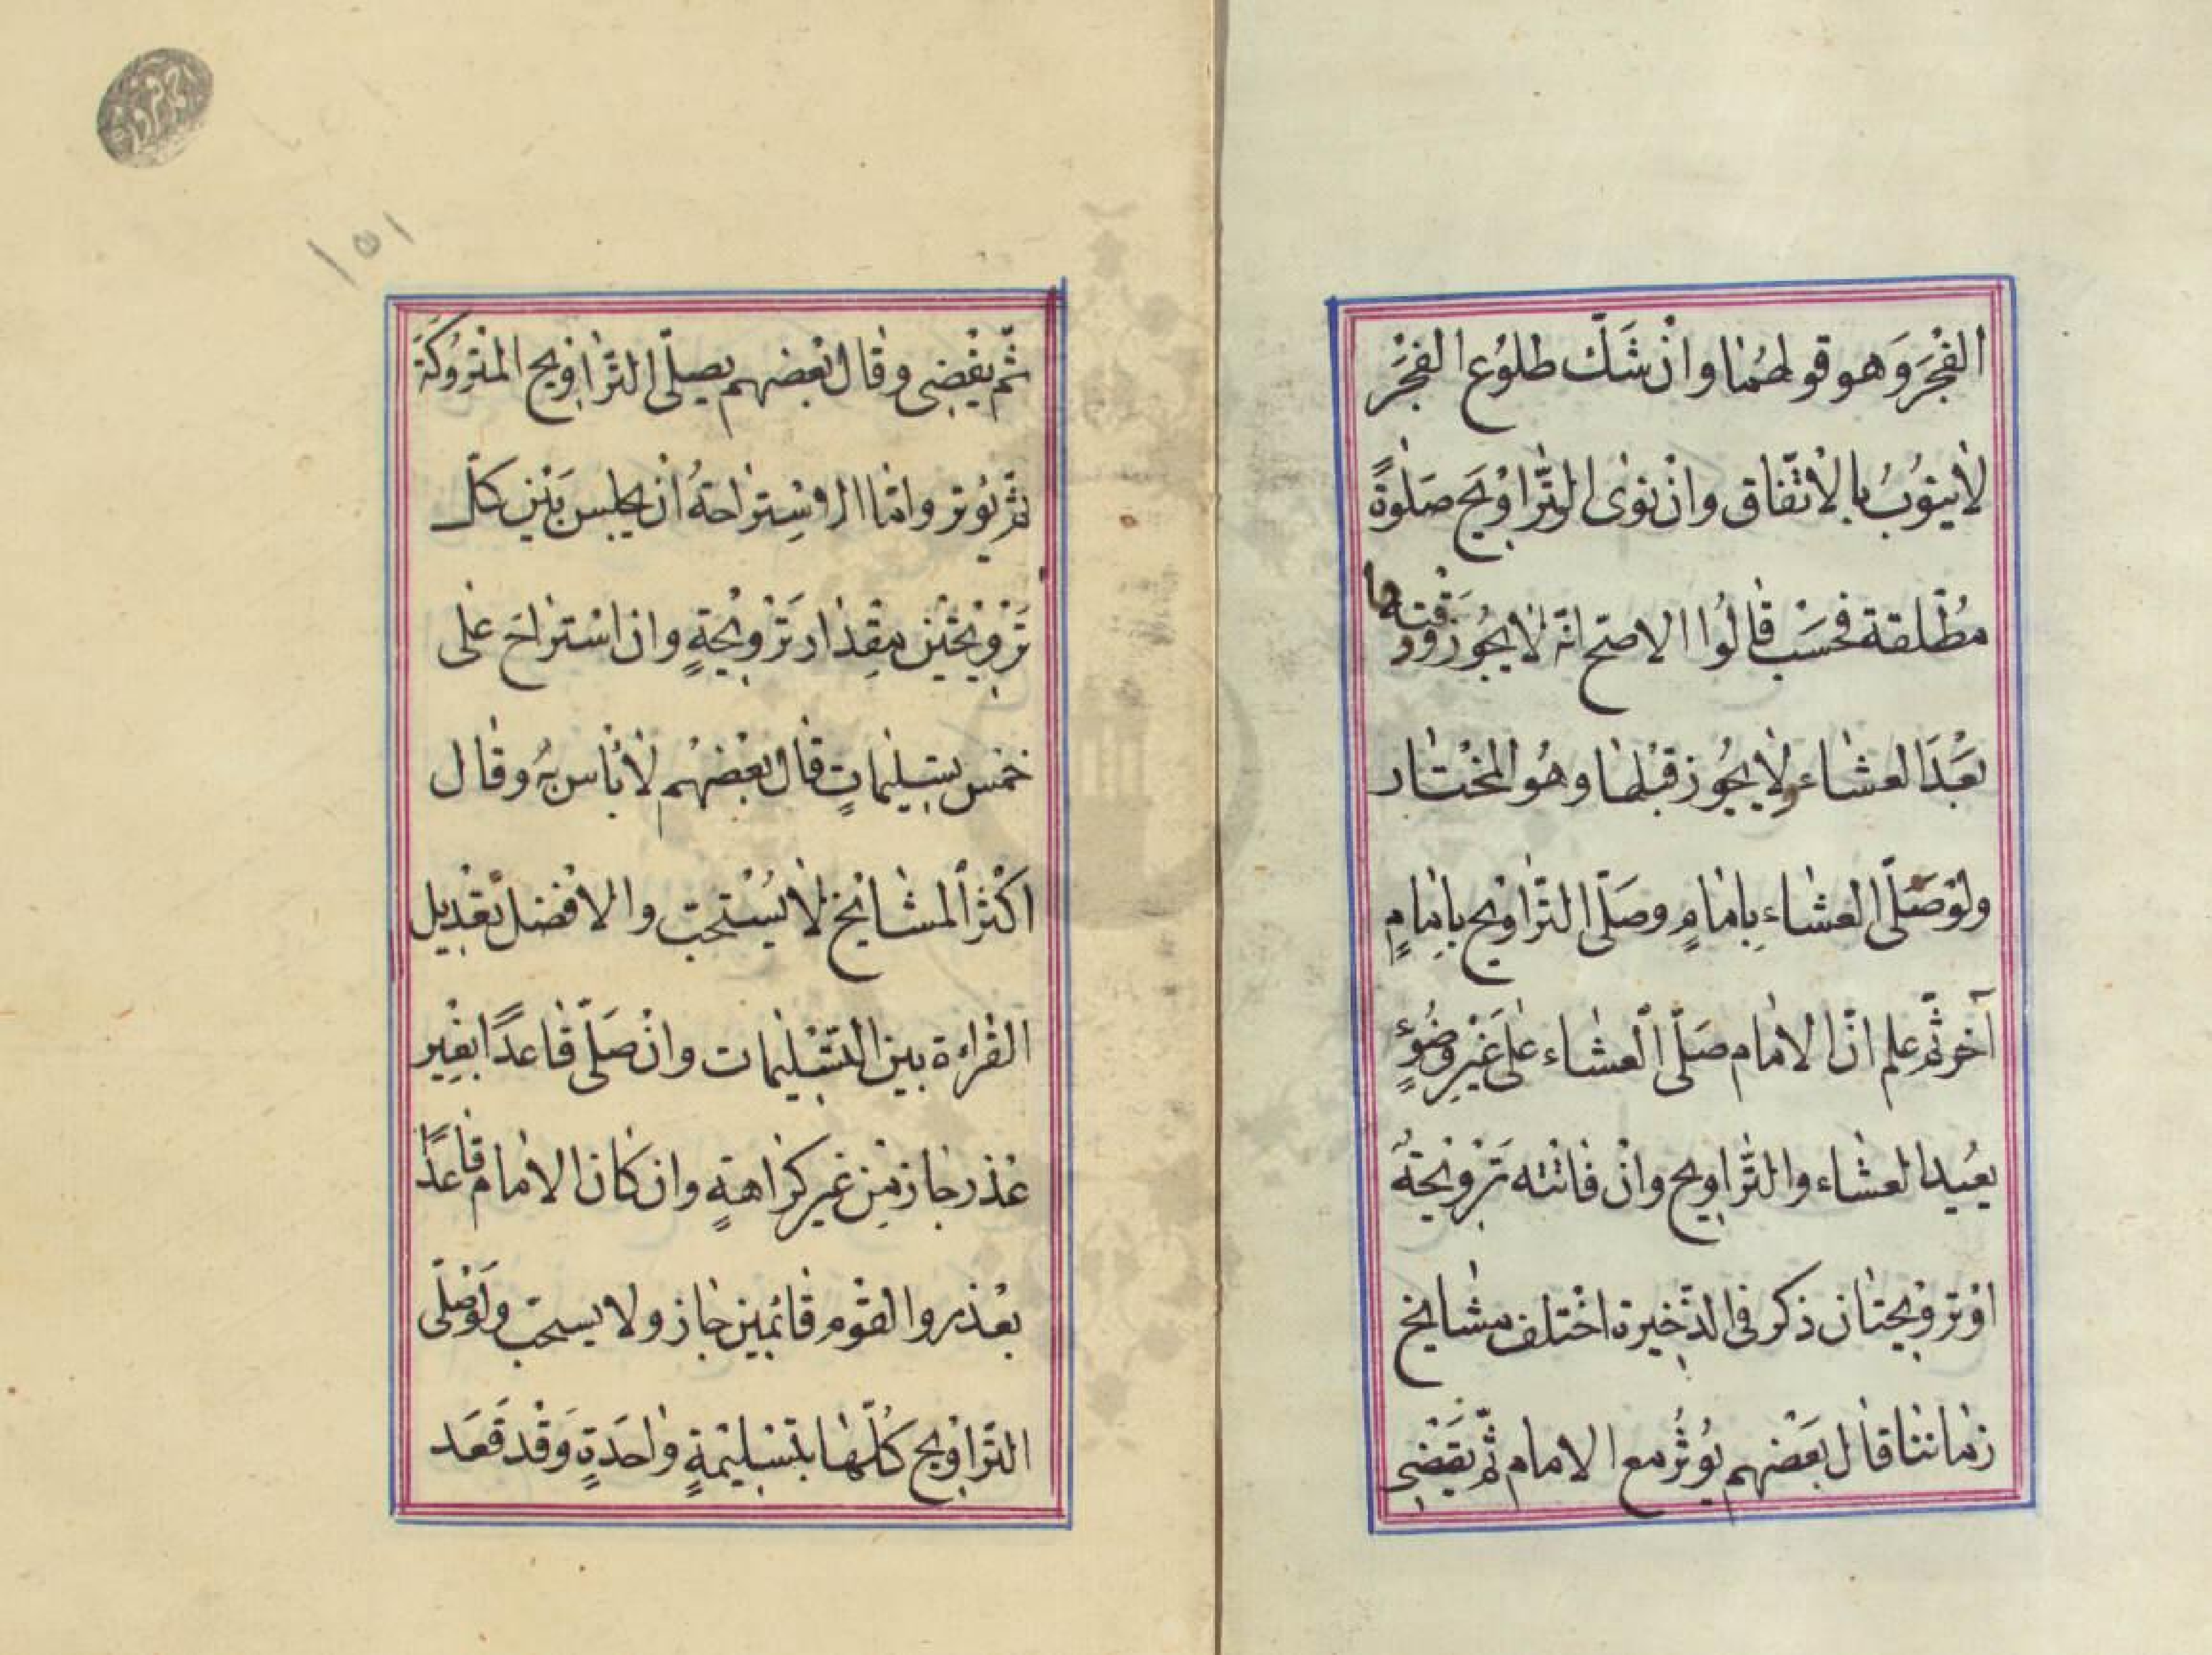 الفْجَرَ وَهو قولهُمٰا وانْ شَكّ طلوُع الفجَرْ
لاٰينوُبُ بالاْتّفاق وانْ نوٰى التّراوْيَح صَلوٰةً
مُطْلقة فحَسَبْ قٰالوُا الاصّح انّه لاٰيجُوز ووَقْتهٰا
بَعْدَ العشٰاء ولاٰيجُوز قبْلهٰا وهُو المخْتٰار
ولوْصَلّى العشٰاءِ بِامٰامٍ وصَلّى التّراويْح بِامٰامٍ
آخر ثمّ علم انّ الامٰام صَلّى العشٰاء عَلىٰ غَيْرِ وضُوُءٍ
يعُيد العشٰاء والتّراويح وانْ فاتته تَرْوْيحَةُ
اوْ ترْويْحتٰان ذكر فى الذّخيرة اخْتلف مشٰايخ
زمٰاننا قال بَعَضْهم يوُترُ مع الامام ثمّ يقَضْى
ثمّ يقْضِى وقٰال بَعْضهم يصلّى التّرٰاوْيح المتْروُكَةَ
ثمّ يوُتر وامّا الاسْترٰاحَةُ انْ يجلس بَيْن كلّ
تَرْوْيحَتيْن مِقْدٰار تَرْوْيحَةٍ وان اسْترٰاحَ علٰى
خمْس تسْليمٰاتٍ قٰال بَعْضهُم لاٰبأس بهُ وقٰال
اكْثر المشٰايخ لاٰيُسْتحبّ والافْضل تَعْديل
القرٰاءة بين التّسْليمٰات وانْ صَلّى قٰاعدًا بغيْر
عْذر جٰاز مِنْ غير كرٰاهةٍ وان كٰان الامٰام قٰاعدًا
بعْذر والقوْم قٰائمين جٰاز ولا يستحبّ ولَوْصَلّى
التّراوْيح كُلّهٰا بتسْليمْةٍ وٰاحَدةٍ وَقْد قَعَد
١٥١